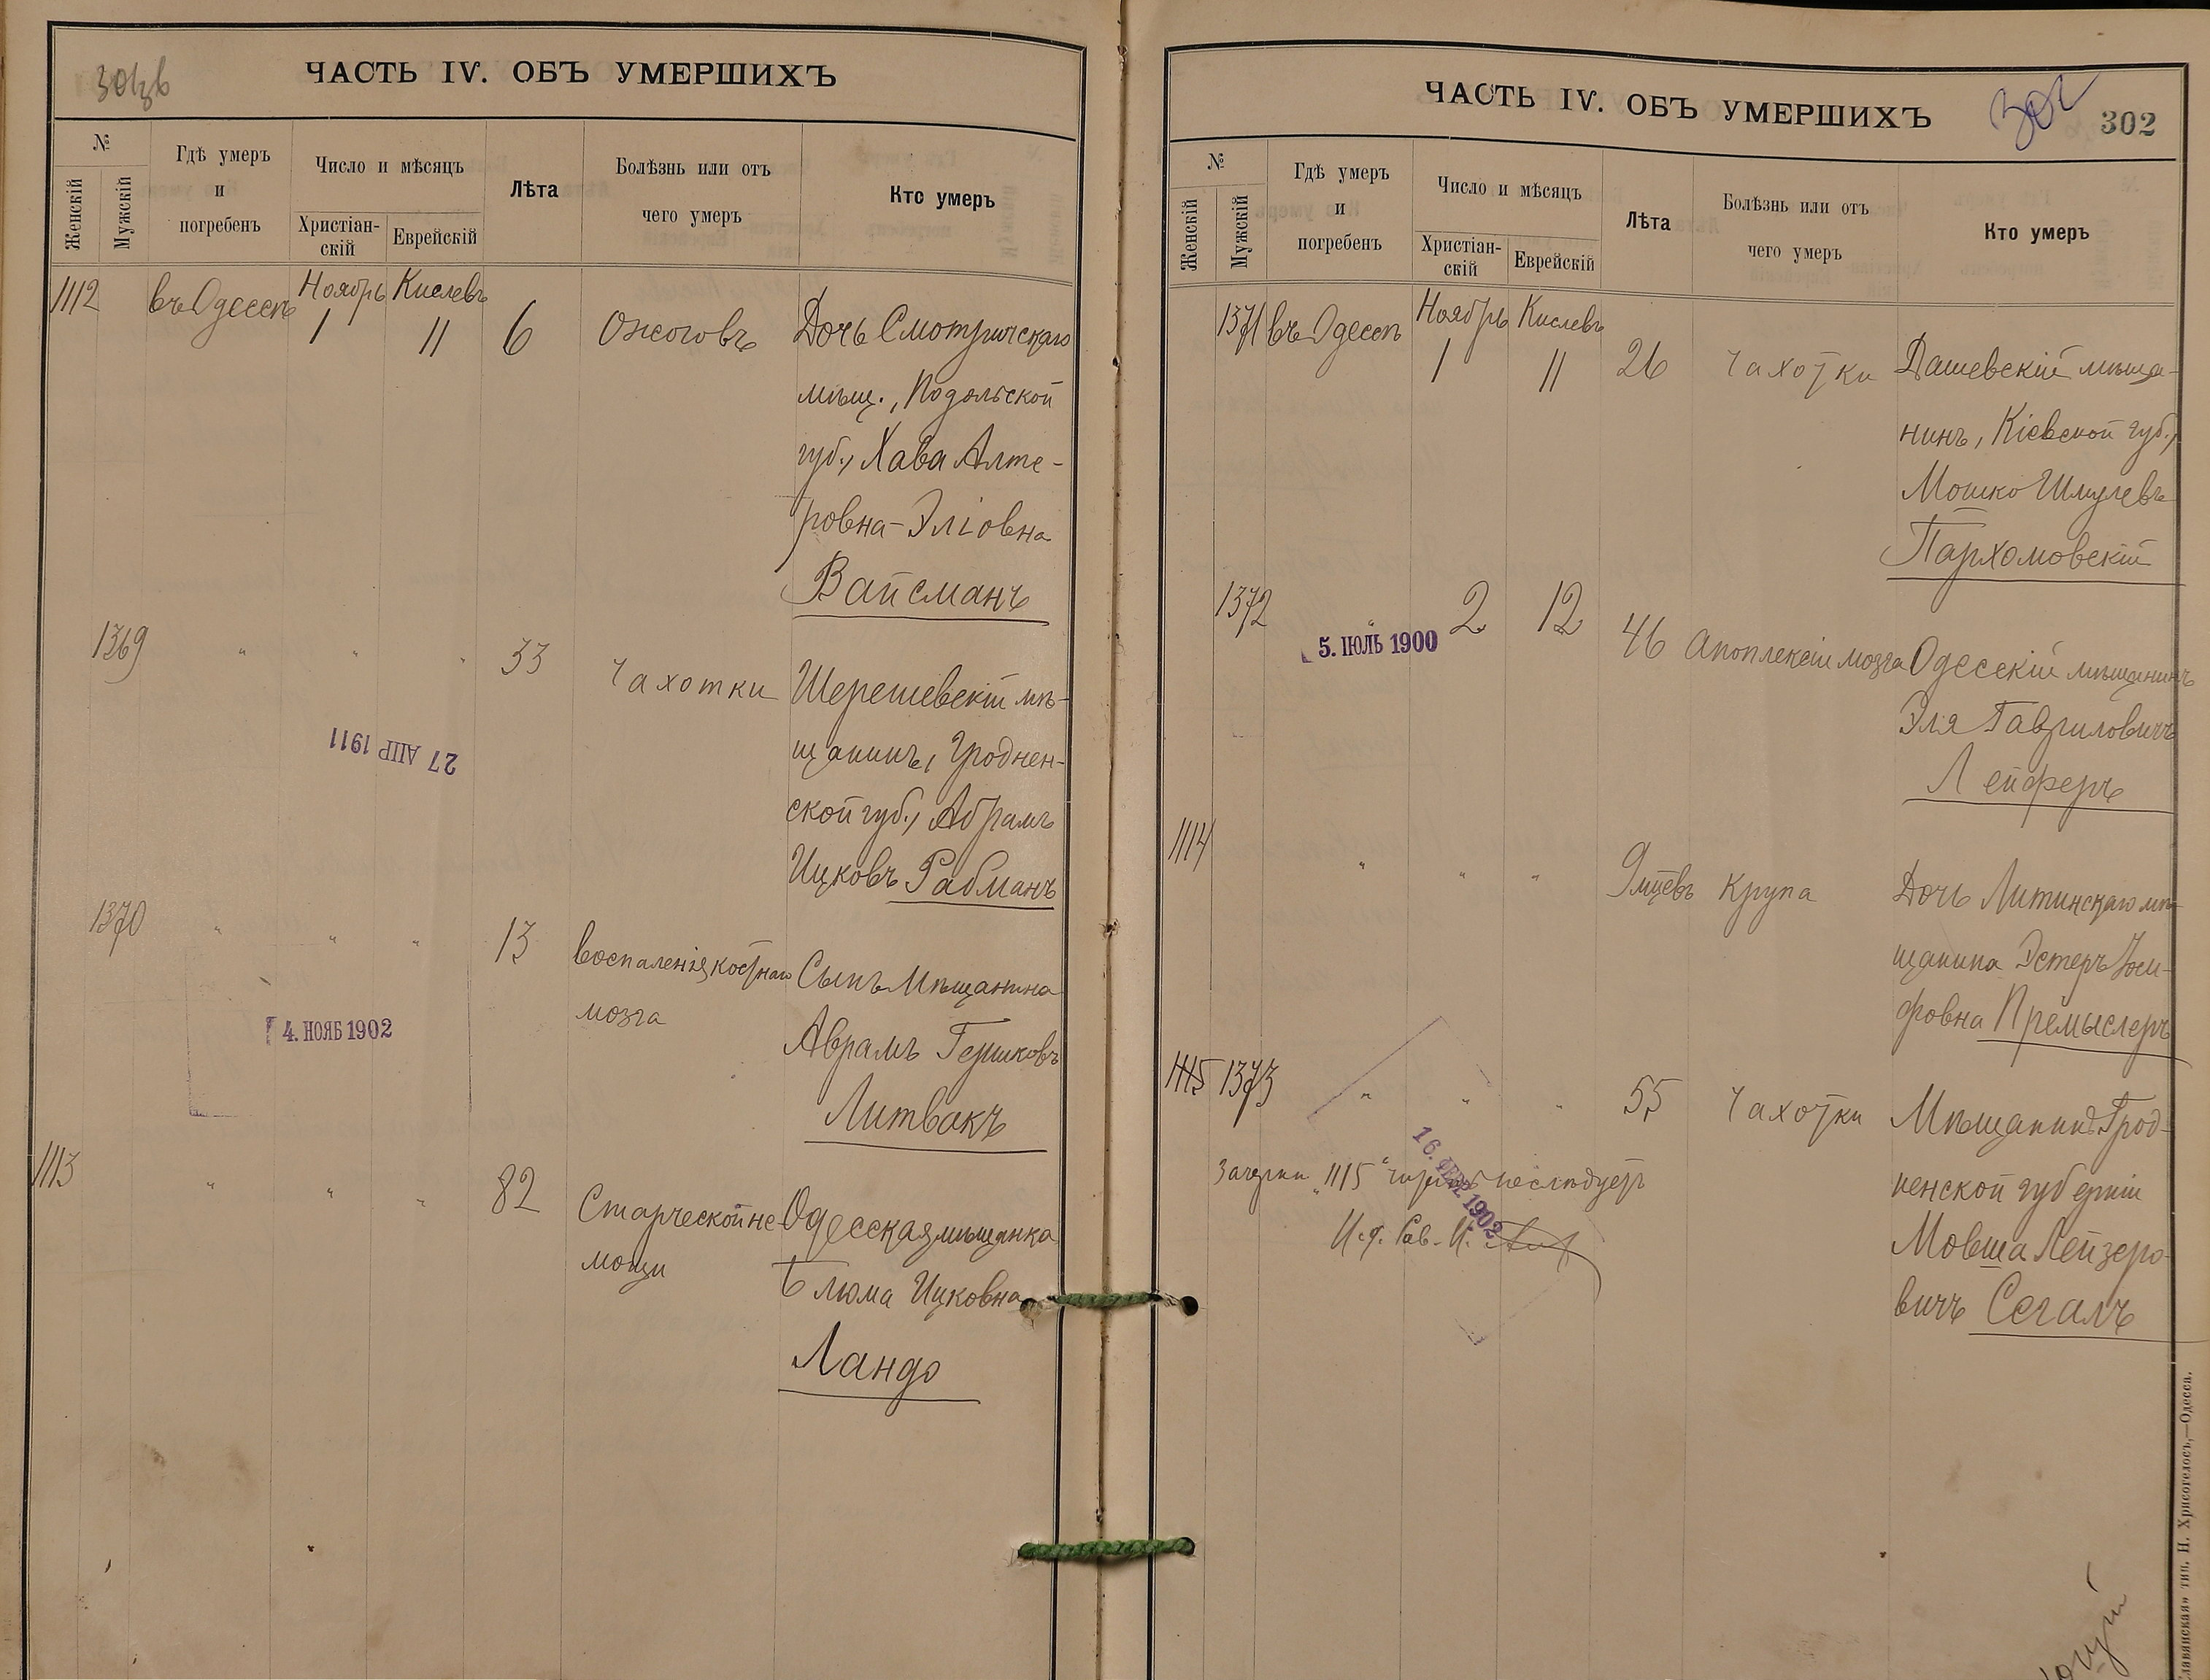 301зв
ЧАСТЬ IV. ОБЪ УМЕРШИХЪ
№
Женскій
Мужскій
Гдѣ умеръ
и
погребенъ
Число и мѣсяцъ
Христіан-
скій
Еврейскій
Лѣта
Болѣзнь или отъ
чего умеръ
Кто умеръ
1112 въ Одессѣ Ноябрь Кислевъ
1 11 6 Ожоговъ Дочь Смотричскаго
мѣщ., Подольской
губ., Хава Алте-
ровна-Эліовна
Вайсманъ
1369 " " " 33 Чахотки Шерешевскій мѣ-
щанинъ, Гроднен-
ской губ., Абрамъ
Ицковъ Рабманъ
27 АПР 1911
1370 " " " 13 Воспаленія костнаго Сынъ мѣщанина
мозга
Аврамъ Гершковъ
Литвакъ
4. НОЯБ 1902
1113 " " " 82 Старческой не- Одесская мѣщанка
мощи
Блюма Ицковна
Ландо
ЧАСТЬ IV. ОБЪ УМЕРШИХЪ
302
302
№
Женскій
Мужскій
Гдѣ умеръ
и
погребенъ
Число и мѣсяцъ
Христіан-
скій
Еврейскій
Лѣта
Болѣзнь или отъ
чего умеръ
Кто умеръ
1371 въ Одессѣ Ноябрь Кислевъ
1 11 26 Чахотки Дашевскій мѣща-
нинъ, Кіевской губ.,
Мошко Шмулевъ
Пархомовскій
1372 " 2 12 46 Апоплексіи мозга Одесскій мѣщанинъ
Эля Гавриловичъ
Лейферъ
5. ІЮЛЬ 1900
1114 " " " 9 мцевъ Крупа Дочь Литинскаго мѣ-
щанина Эстеръ Іоси-
фовна Премыслеръ
1115 1373 " " " 55 Чахотки Мѣщанинъ Грод-
ненской губерніи
Мовша Лейзеро-
вичъ Сегалъ
Зачеркн. „1115“ не слѣдуетъ
И. д.
16. ФЕВР 1902
Славянская» тип. Н. Хрисогелосъ,—Одесса.